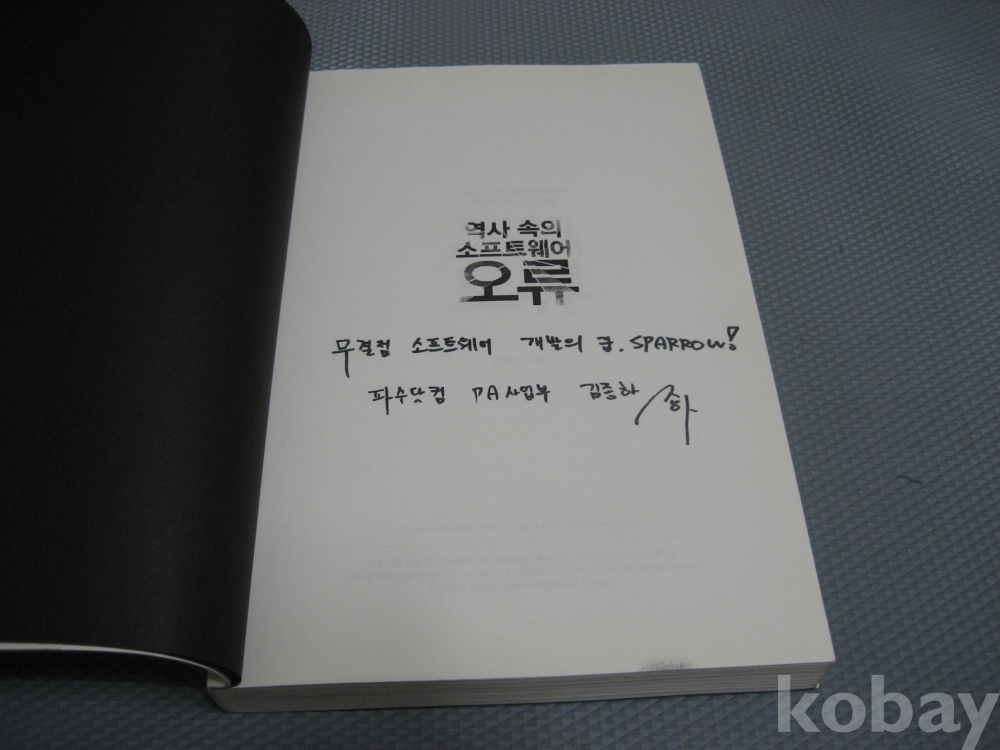 역사 속의
소프트웨어
오류
무결점 소프트웨어 개발의 꿈. SPARROW!
파수닷컴 PA사업부 김종하
kobay